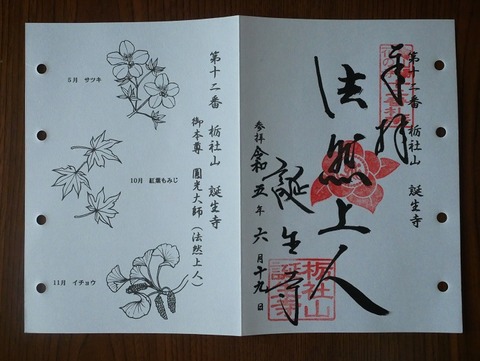 第十二番 栃社山 誕生寺
奉拝
法然上人
誕生寺
栃社山
誕生寺
参拝 令和五年 六月十九日
第十二番 栃社山 誕生寺
御本尊 圓光大師(法然上人)
5月 サツキ
10月 紅葉もみじ
11月 イチョウ